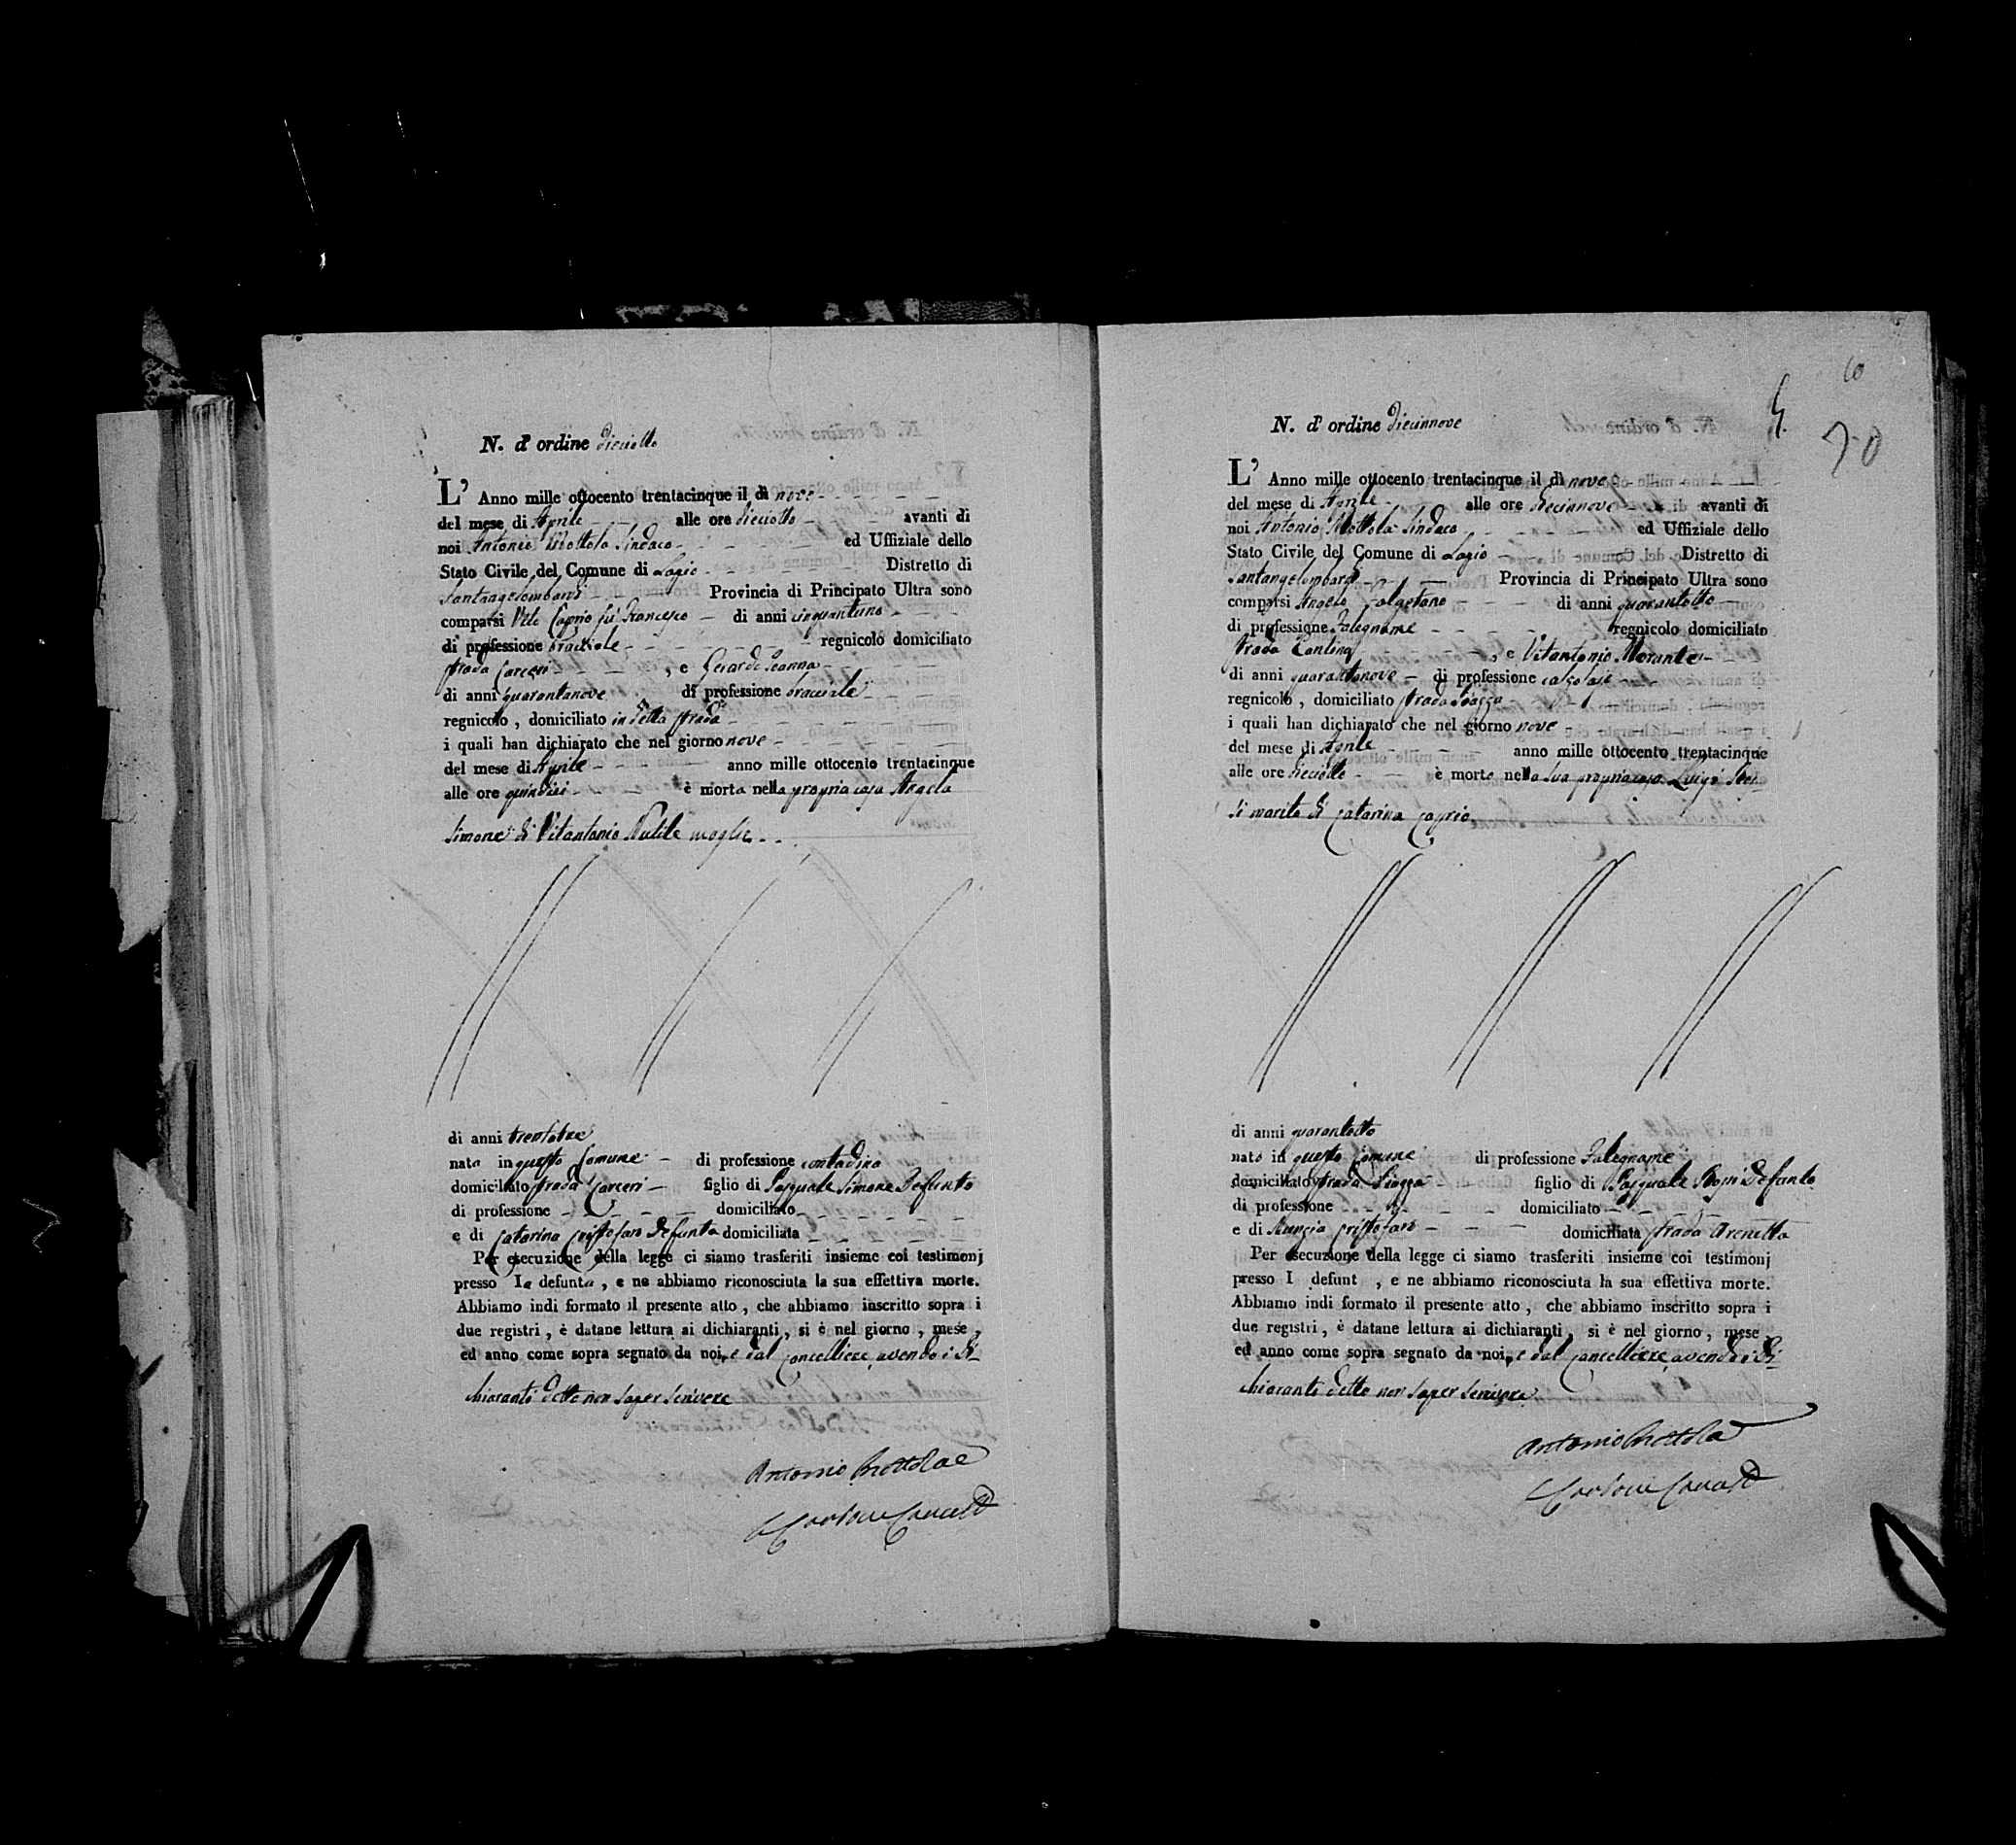 N. d' ordine dieciotto
L' Anno mille ottocento trentacinque il dì nove
del mese di Aprile alle ore dieciotto avanti di
noi Antonio Mottola Sindaco ed Uffiziale dello
Stato Civile del Comune di Lagio Distretto di
Santangelombardi Provincia di Principato Ultra sono
comparsi Vito Caprio fu Francesco di anni cinquantuno
di professione bracciale regnicolo domiciliato
strada Carceri , e Gerardo
di anni quarantanove di professione bracciale
regnicolo , domiciliato in detta strada
i quali han dichiarato che nel giorno nove
del mese di Aprile anno mille ottocento trentacinque
alle ore quindici è morta nella propria casa Angela
Simone di Vitantonio Rutile moglie
di anni trentatre
nata in questo Comune di professione contadina
domiciliato strada Carceri figlio di Pasquale Simone Defunto
di professione domiciliato
e di Catarina Cristofaro Defunta domiciliata
Per esecuzione della legge ci siamo trasferiti insieme coi testimonj
presso la defunta , e ne abbiamo riconosciuta la sua effettiva morte.
Abbiamo indi formato il presente atto , che abbiamo inscritto sopra i
due registri , è datane lettura ai dichiaranti , si è nel giorno , mese ,
ed anno come sopra segnato da noi, e dal Cancelliere, avendo i di-
chiaranti detto non saper scrivere
Antonio Mottola
10
70
N. d' ordine diecinnove
L' Anno mille ottocento trentacinque il dì nove
del mese di Aprile alle ore diecinnove avanti di
noi Antonio Mottola Sindaco ed Uffiziale dello
Stato Civile del Comune di Lagio Distretto di
Santangelombardi Provincia di Principato Ultra sono
comparsi Angelo Galgetano di anni quarantotto
di professione Falegname regnicolo domiciliato
strada Cantina , e Vitantonio Morante
di anni quarantanove di professione calzolajo
regnicolo , domiciliato strada Piazza
i quali han dichiarato che nel giorno nove
del mese di Aprile anno mille ottocento trentacinque
alle ore dieciotto è morto nella sua propria casa Luigi
marito di Catarina Caprio
di anni quarantotto
nato in questo Comune di professione Falegname
domiciliato strada Piazza figlio di Pasquale Defunto
di professione domiciliato
e di Nunzia Cristofaro domiciliata strada Arenella
Per esecuzione della legge ci siamo trasferiti insieme coi testimonj
presso I defunt , e ne abbiamo riconosciuta la sua effettiva morte.
Abbiamo indi formato il presente atto , che abbiamo inscritto sopra i
due registri , è datane lettura ai dichiaranti , si è nel giorno , mese
ed anno come sopra segnato da noi, e dal Cancelliere, avendo i di-
chiaranti detto non saper scrivere
Antonio Mottola